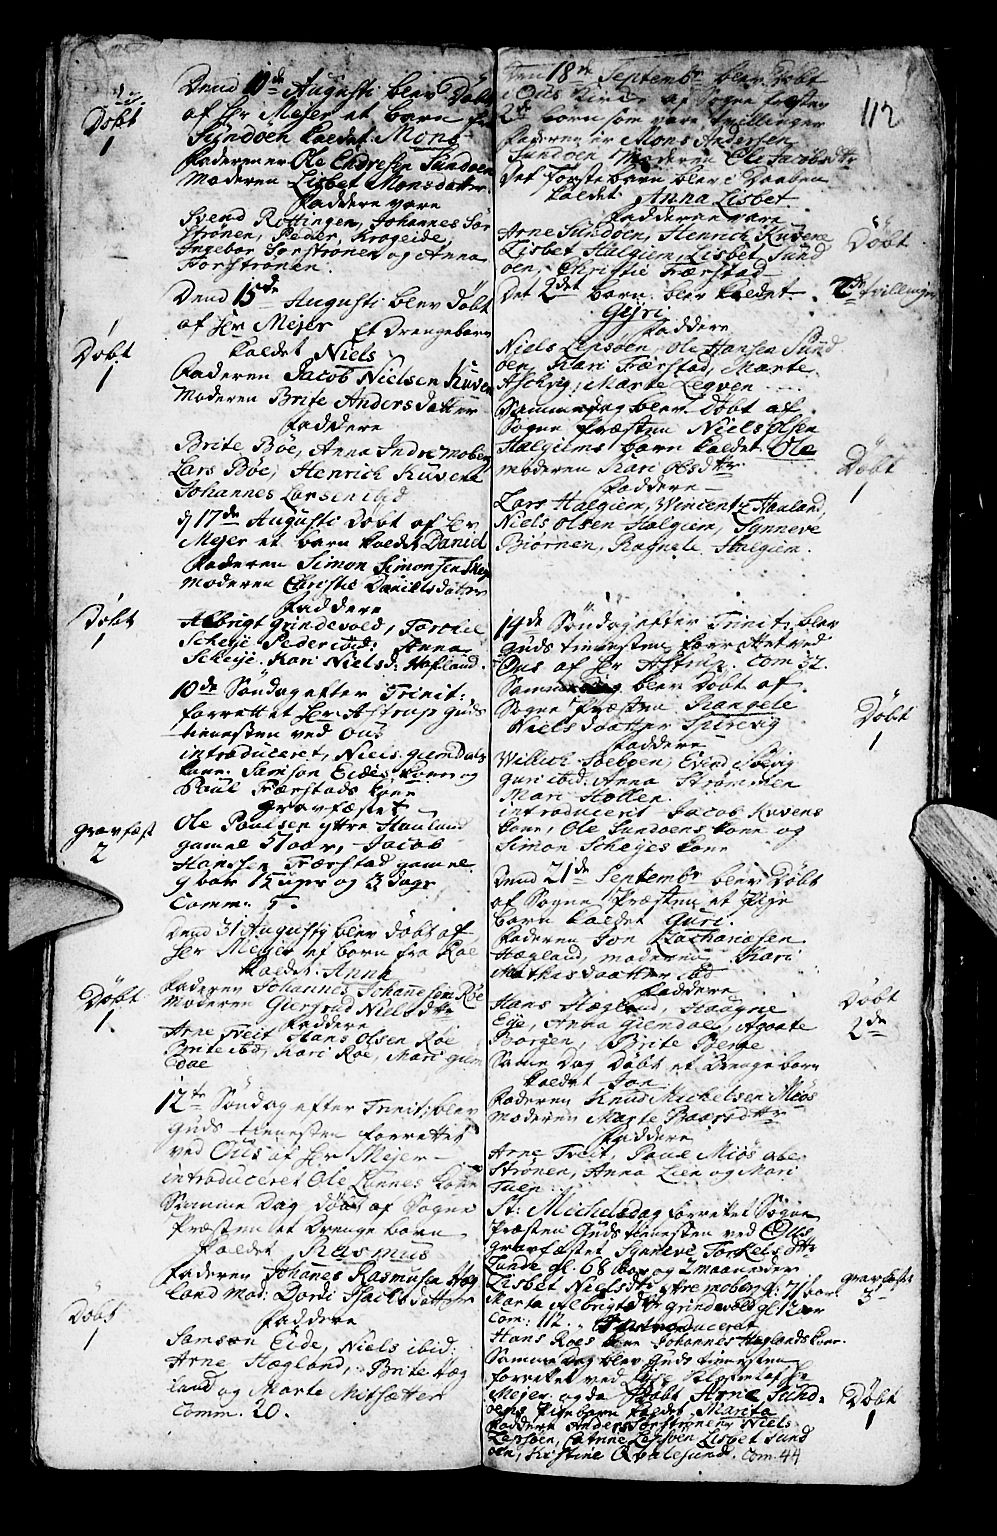 Dend 10de Augusti blev Døbt
af Hr Mejer et barn fra
Sundøen kaldet Mons
Døbt
1
faderen er Ole Endresen Sundøen
Moderen Lisbet Monsdatter
faddere vare
Svend Rottingen, Johannes For
Strønen, Peder Krogeide,
Ingebor Forstrønen og Anna
Forstrønen.
Dend 15de Augusti blev døbt
af Hr Mejer et Drengebarn
kaldet Niels
Døbt
1
faderen Jacob Nielsen Kuven
Moderen Brite Andersdatter
faddere
Brite Bøe, Anna Indre Moberg
Lars Bøe, Henrich Kuvene
Johannes Larsen ibid
d 17de Augusti Døbt af Hr
Mejer et barn kaldet Daniel
faderen Simon Simonsen Skeje
Moderen Christie Danielsdatter
faddere
Døbt
1
Albrigt Grindevold, Torkel
Scheje Peder ibid: Anna
Scheje. Kari Niels d: Hofland.
10de Søndag efter Trinit:
forrettet Hr Astrup Guds
tienesten ved Ous
introduceret, Niels Giendals
kone. Samson Eides kone og
Poul Færstads kone
gravfæstet
gravfæst
2
Ole Poulsen ytre Hauland
gamel 57 aar, Jacob
Hansen Færstad gamel
9 aar 15 uger og 3 dage
Comm: 5.
Dend 31 Augusty blev døbt af
Hr Mejer et barn fra Roe
kaldet Anna
Døbt
1.
faderen Johannes Johannesen Røe
Moderen Giertrud Nielsdtr
faddere
Arne Tveit Hans Olsen Røe
Brite ibid, Kari Roe, Mari Giem
dae
12te Søndag efter Trinit: blev
Guds tienesten forrettet
ved Ous af Hr Mejer
introduceret Ole Lunnes kone
Samme Dag døbt af Sogne
Præsten et Drenge barn
kaldet Rasmus
faderen Johanes Rasmusen Hæg
land Mod: Dordi Hallsdatter
faddere
Døbt
1
Samson Eide, Niels ibid:
Arne Hægland, Brite Hæg
land og Marte Mitsætter
Comm. 20.
112
Den 18de Septembr blev Døbt
i Ous Kirke af Sogne Præsten
2de børn som vare tvillinger
faderen er Mons Andersen
Sundøen Moderen Ole Jacobsdtr
det første barn blev i Daaben
kaldet Anna Lisbet
fadderne vare
Døbt
Arne Sundøen, Henrich Kuvene,
Lisbet Halgiem, Lisbet Sund
øen, Christie Færstad
Det 2det barn blev kaldet
2de tvillinger
Gyri
faddere
Niels Lepsøen, Ole Hansen Sund
øen, Kari Færstad, Marte
Aschvig, Marte Legven
Samme dag blev Døbt af
Sogne Præsten Niels Olsen
Halgiems barn kaldet Ole
moderen Kari Olsdtr
Døbt
1
faddere
Lars Halgiem, Wincentz Hauland,
Niels Olsen Halgiem, Synneve
Biørnen, Ragnele Halgiem.
14de Søndag efter Trinit: blev
Guds tienesten forrettet ved
Ous af Hr Astrup. Com 32.
Samme Dag blev Døbt af
Sogne Præsten Rangele
Niels Daatter Spirevig
Døbt
1
faddere
Willich Solbgen, Evind Søevig
Guri ibid: Anna Strømmen
Mari Hollen.
introducerit Jacob Kuvens
kone, Ole Sundøens kone og
Simon Schejes kone
Dend 21de Septembr blev Døbt
af Sogne Præsten et Pige
barn kaldet Guri.
faderen Jon Zachariasen
Hægland, moderen Kari
Mathisdaatter ibid
faddere
Døbt
2de
Hans Hægland, Haagne
Eye, Anna Giendal, Agaate
Borgen, Brite Berge
Samme Dag Døbt et Drengebarn
kaldet Jon
faderen Knud Michelsen Miøs
moderen Marte Baarsdtr
faddere
Arne Tveit, Poul Miøs Ober
Strønen, Anna Lien og Mari
Tuen
St: Michelsdag forrettet Sogne
Præsten Guds tienesten ved Ous
gravfæstet Synneve Torkels dtr
Lunde gl. 68 aar og 2 maaneder
gravfæstet
3
Lisbet Nielsdtr ytre moberg gl: 71 aar
Marta Albrigtsdtr Grindevold gl 12 aar
Com: 112. Introduceret
Hans Roes kone Johannes Hæglands kone.
Samme Dag blev Guds tienesten
forrettet ved Lyse Closter af Hr
Mejer og da Døbt Arne Sund-
øens Pigebarn kaldet Marita
Døbt
1
faddere Anders Forstrønen Niels
Lepsøen, Catrine Lepsøen Lisbet Sund
øen, Kirstine Qvalesund. Com: 44